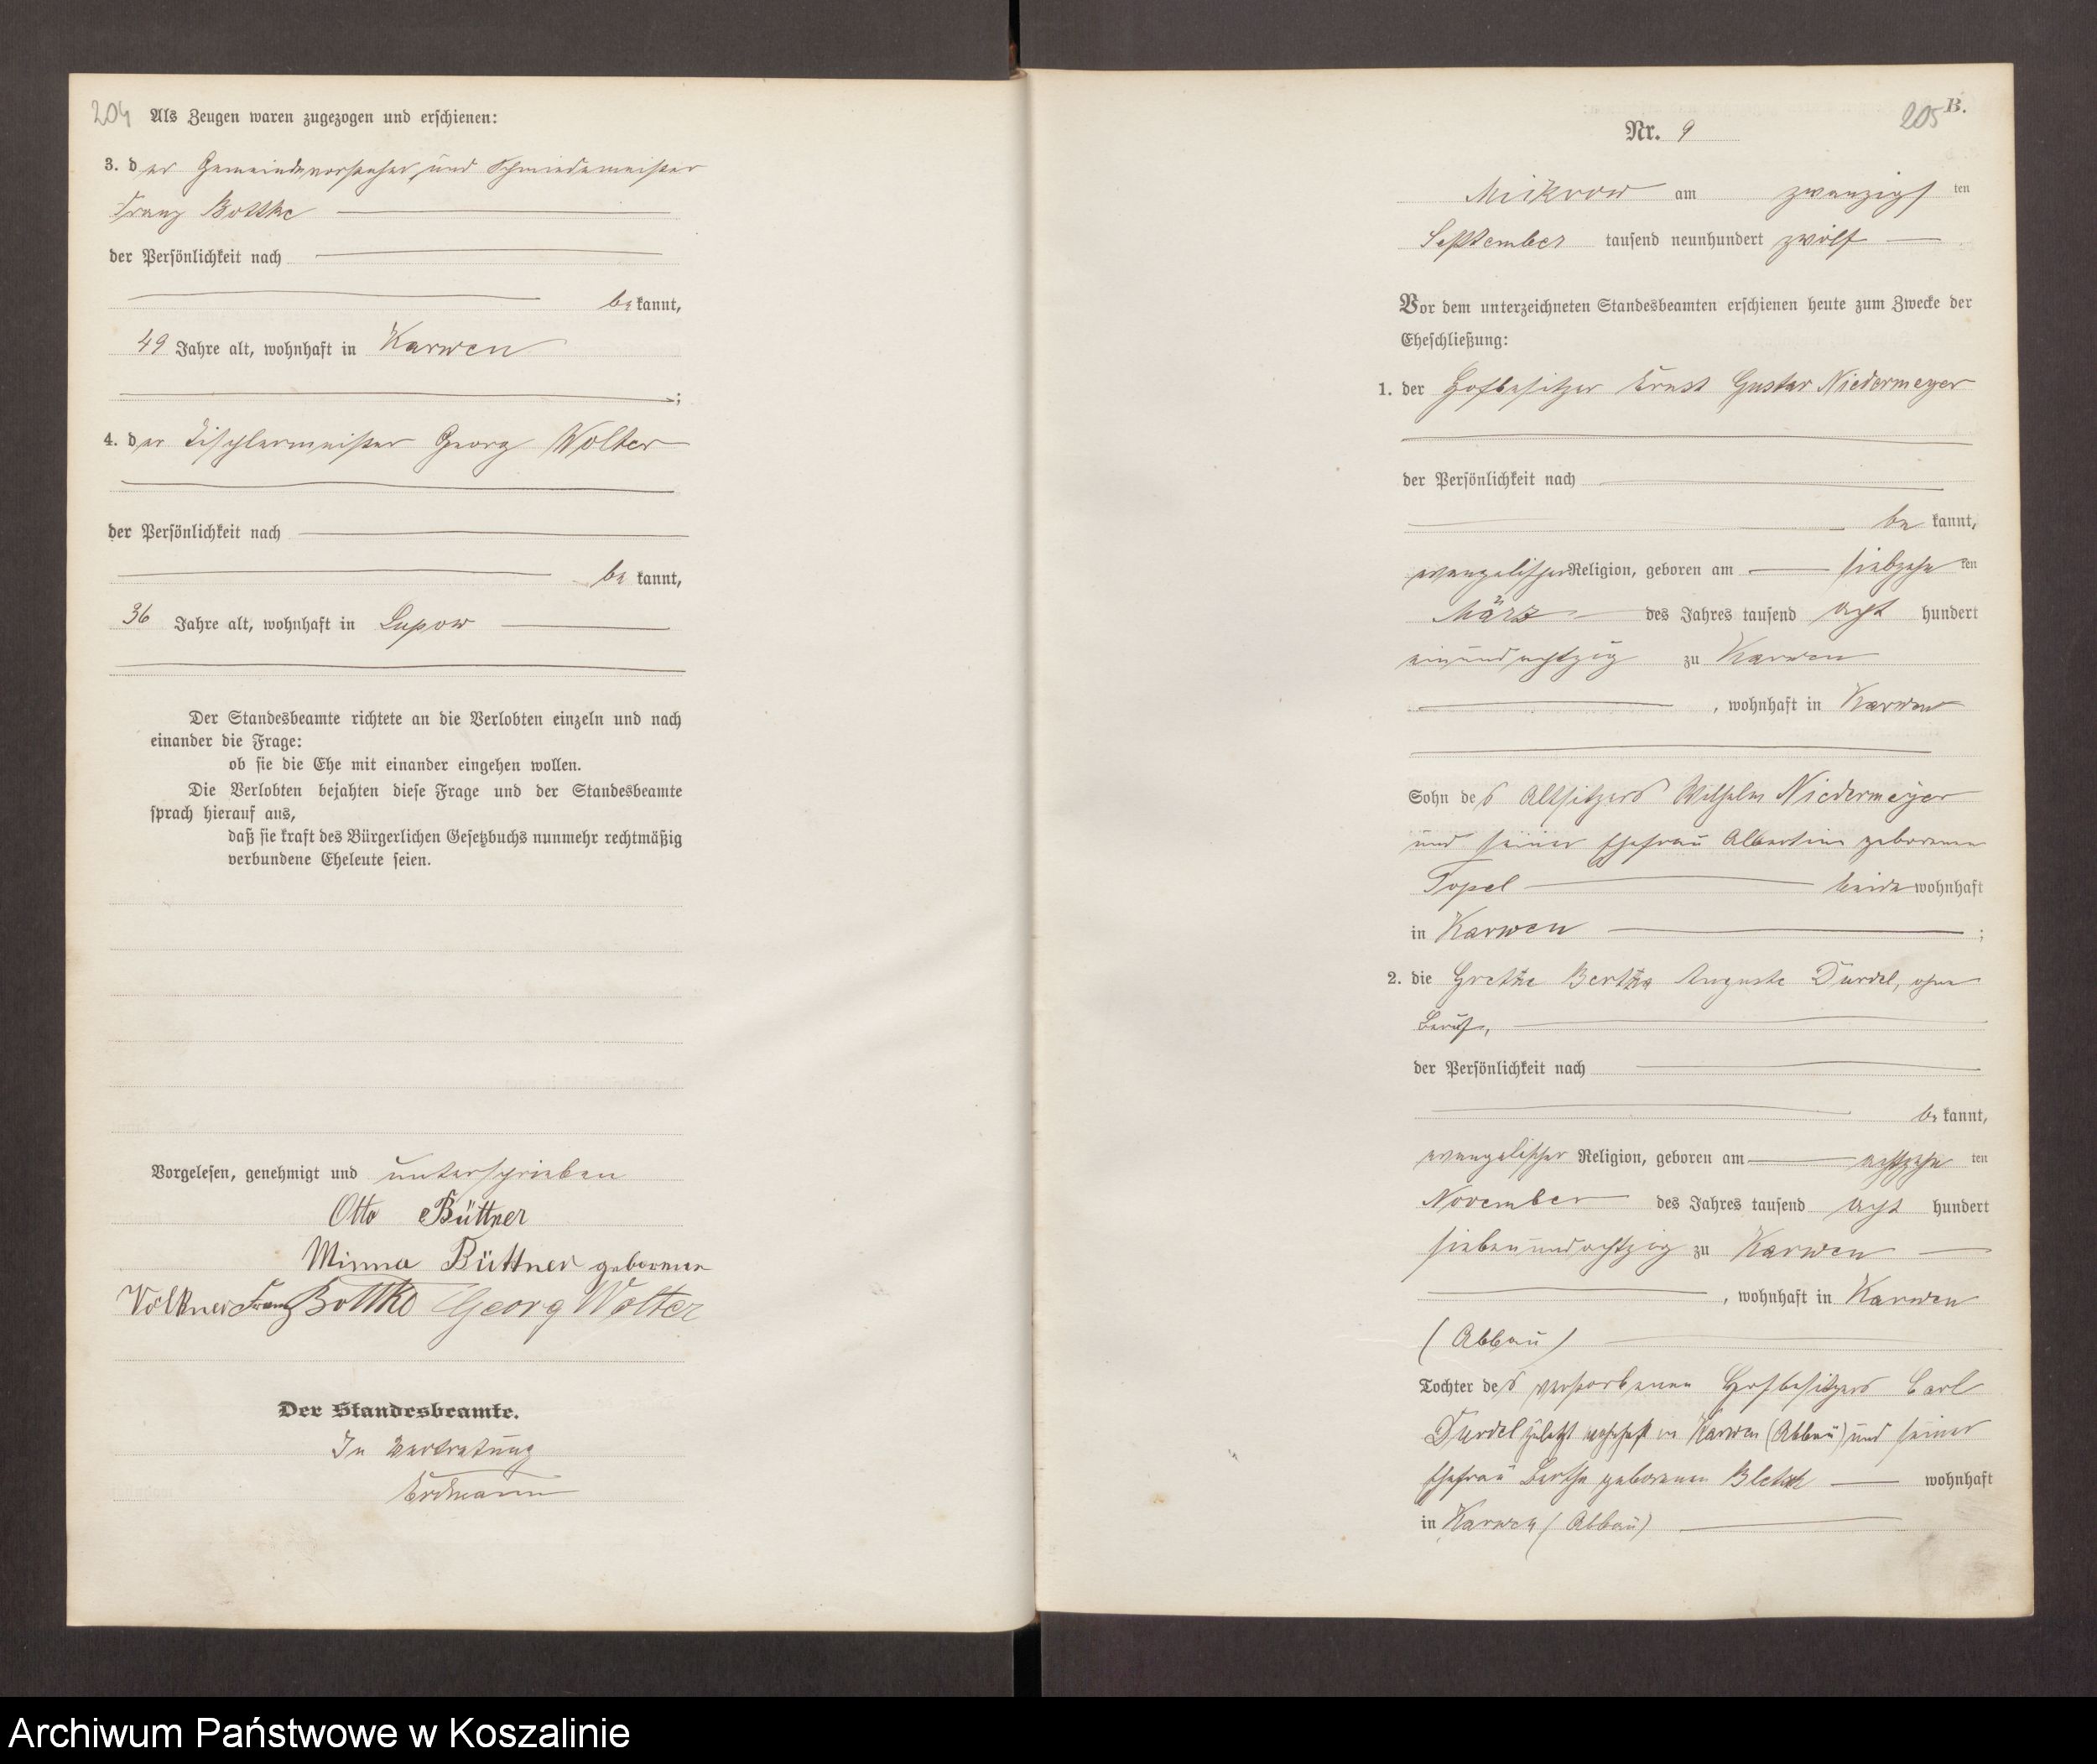 204 Als Zeugen waren zugezogen und erschienen:
3. der Gemeindevorsteher und Schmiedemeister
Franz Bottke
der Persönlichkeit nach
bekannt,
49 Jahre alt, wohnhaft in Karwen
;
4. der Tischlermeister Georg Wolter
der Persönlichkeit nach
bekannt,
36 Jahre alt, wohnhaft in Lupow
Der Standesbeamte richtete an die Verlobten einzeln und nach
einander die Frage:
ob sie die Ehe mit einander eingehen wollen.
Die Verlobten bejahten diese Frage und der Standesbeamte
sprach hierauf aus,
daß sie kraft des Bürgerlichen Gesetzbuchs nunmehr rechtmäßig
verbundene Eheleute seien.
Vorgelesen, genehmigt und unterschrieben
Otto Büttner
Minna Büttner geborenen
Völkner Franz Bottke Georg Wolter
Der Standesbeamte.
In Vertretung
Erdmann
B.
205
Nr. 9
Mikrow am zwanzigsten
September tausend neunhundert zwölf
Vor dem unterzeichneten Standesbeamten erschienen heute zum Zwecke der
Eheschließung:
1. der Hofbesitzer Ernst Gustav Niedermeyer
der Persönlichkeit nach
bekannt,
evangelischer Religion, geboren am siebzehnten
März des Jahres tausend acht hundert
einundachtzig zu Karwen
, wohnhaft in Karwen
Sohn des Altsitzers Wilhelm Niedermeyer
und seiner Ehefrau Albertine geborenen
Topel beide wohnhaft
in Karwen ;
2. die Grethe Bertha Auguste Durdel, ohne
Beruf,
der Persönlichkeit nach
bekannt,
evangelischer Religion, geboren am achtzehnten
November des Jahres tausend acht hundert
siebenundachtzig zu Karwen
, wohnhaft in Karwen
(Abbau)
Tochter des verstorbenen Hofbesitzers Carl
Durdel zuletzt wohnhaft in Karwen (Abbau) und seiner
Ehefrau Bertha geborenen wohnhaft
in Karwen (Abbau)
Archiwum Państwowe w Koszalinie